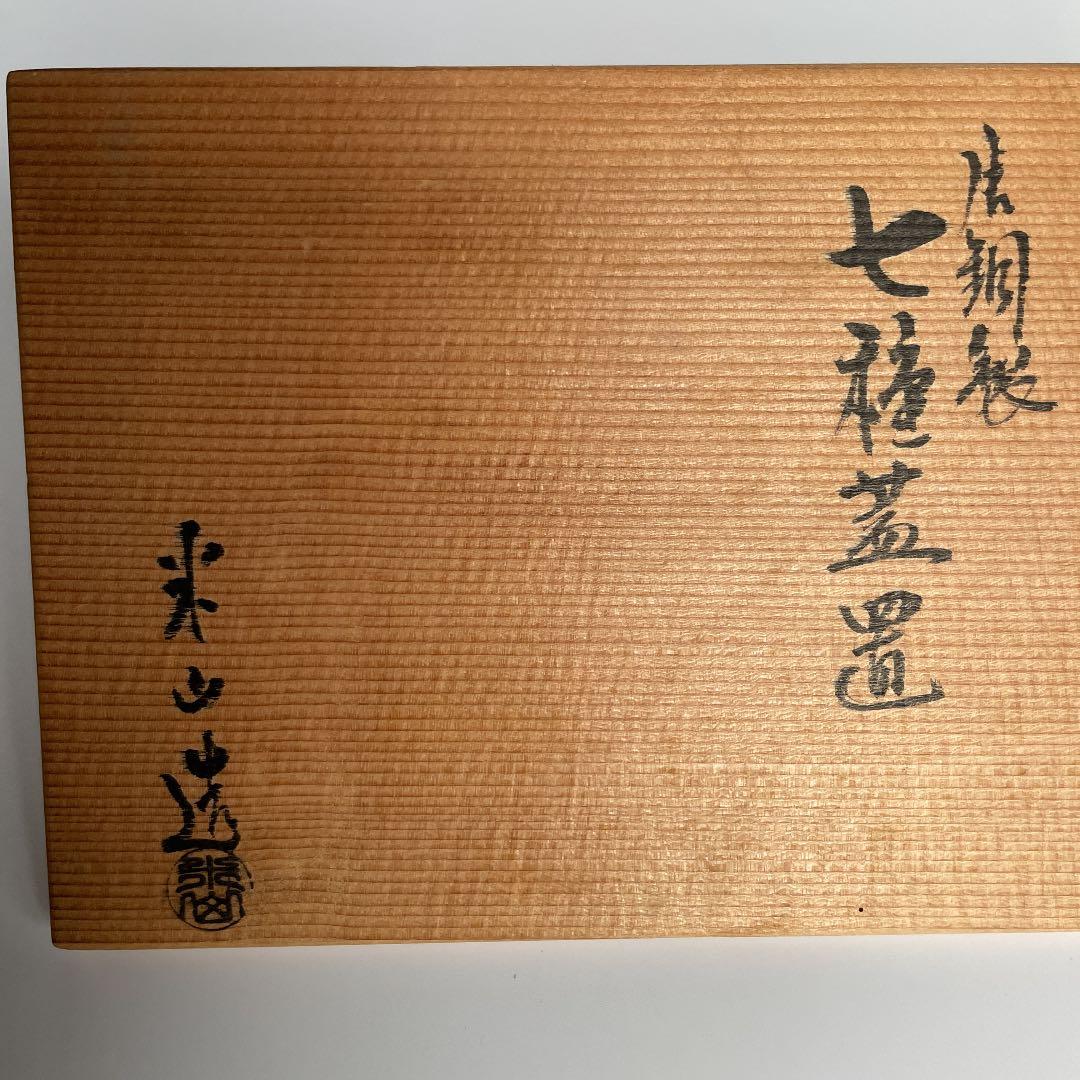 唐銅製
七種蓋置
米山造